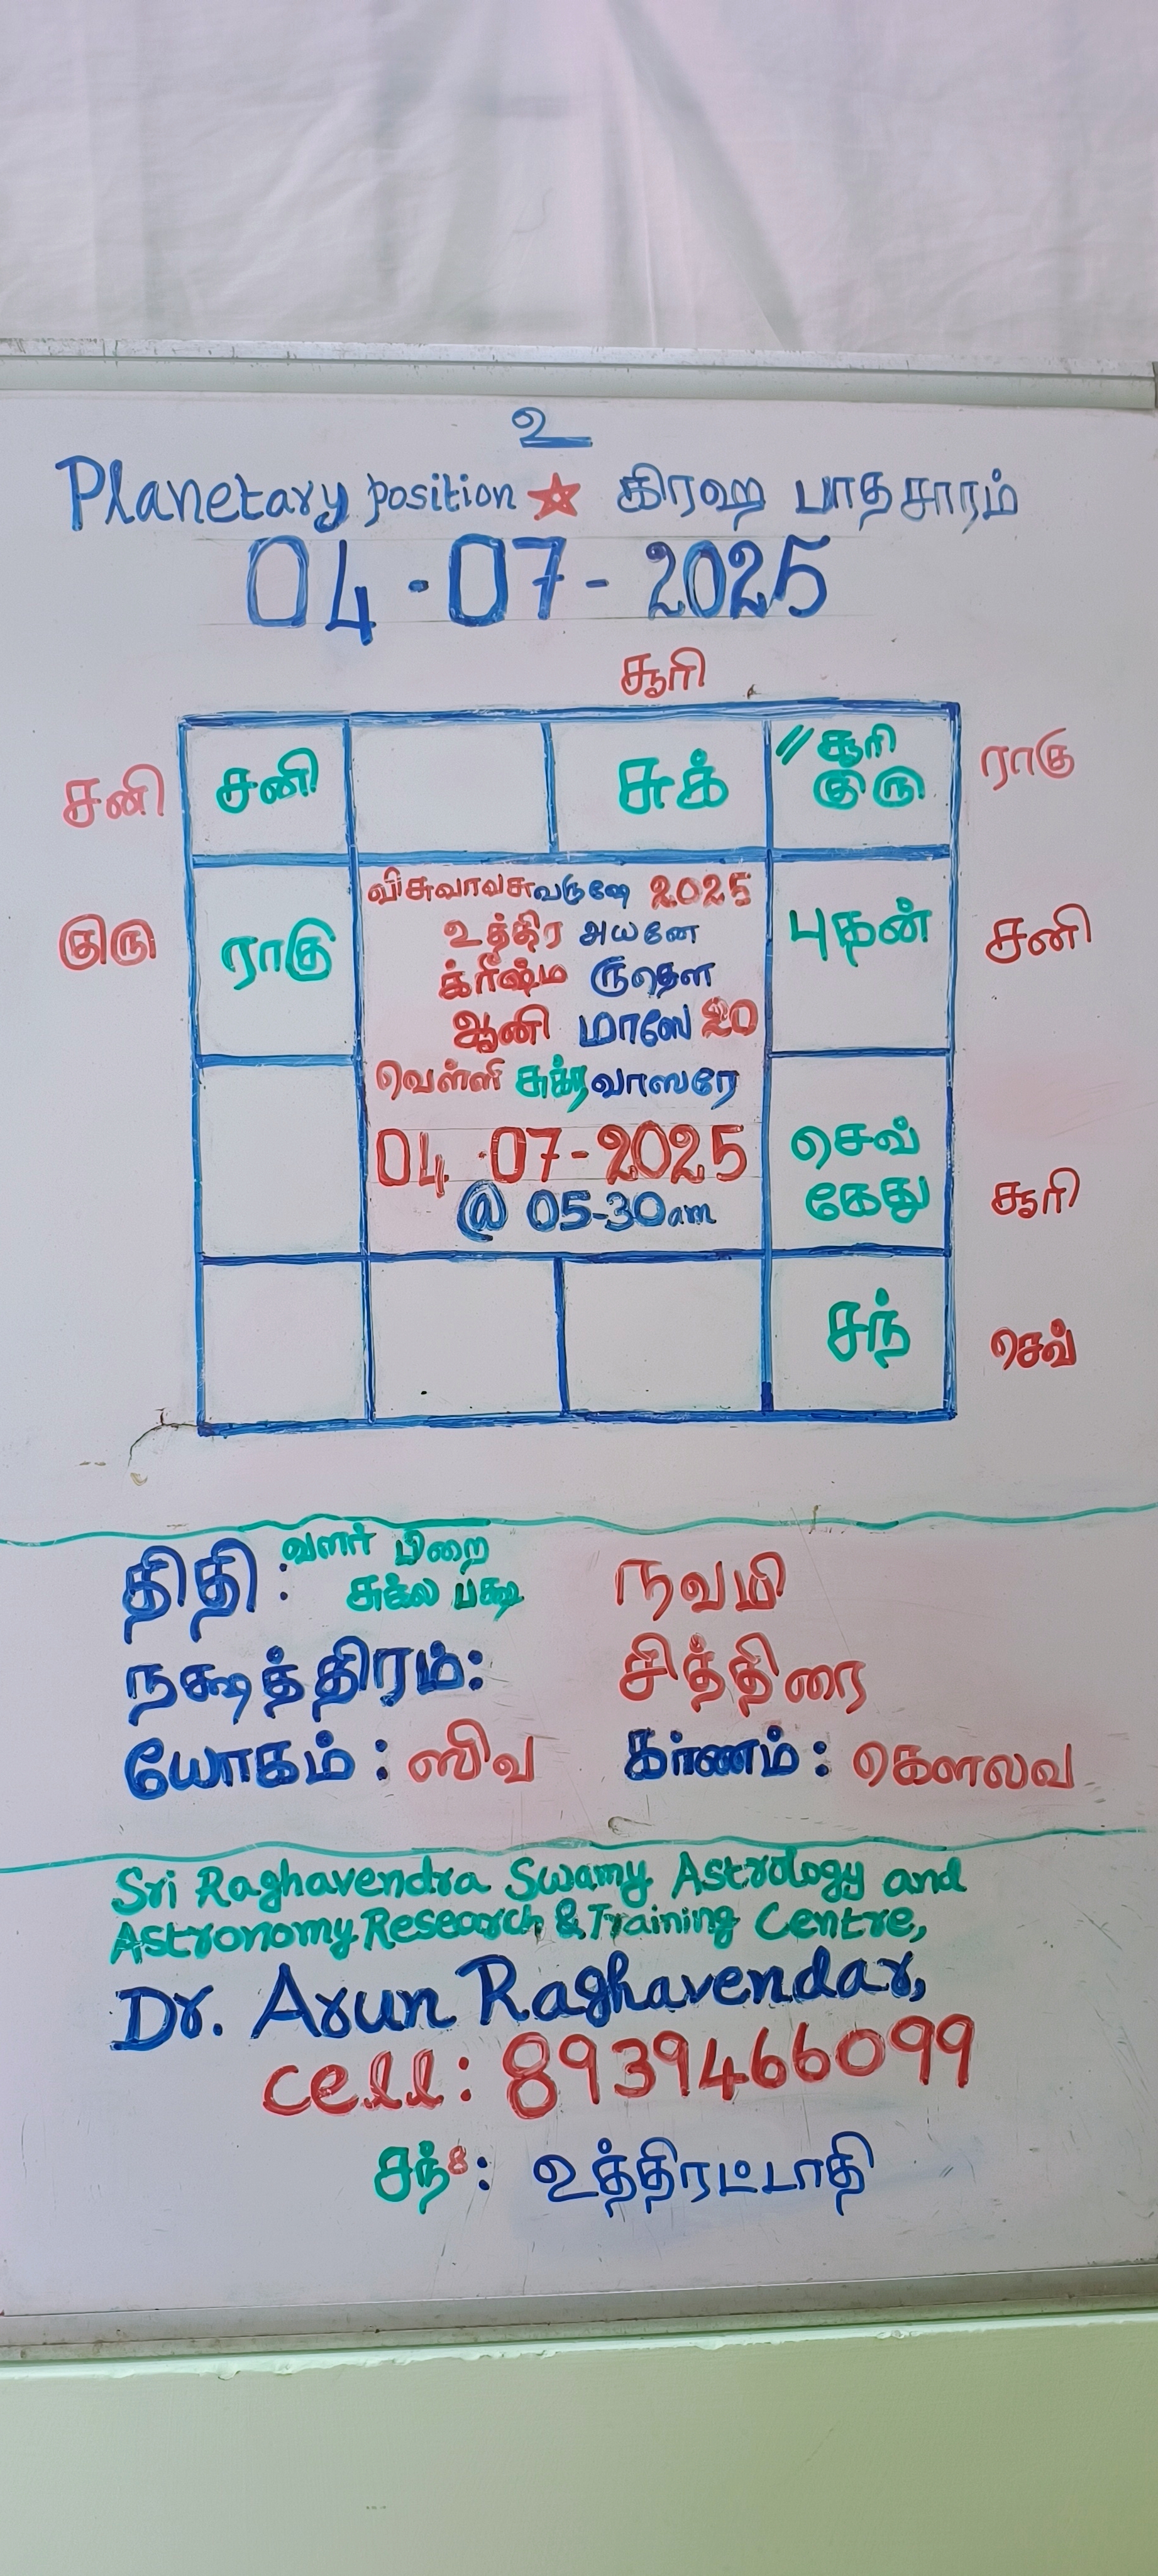 உ
Planetary position ☆ கிரஹ பாதசாரம்
04-07-2025
சூரி
சனி சனி சுக் // சூரி ராகு
குரு
குரு ராகு புதன் சனி
விசுவாவசுவருஷே 2025
உத்திர அயனே
க்ரீஷ்ம ருதௌ
ஆனி மாஸே 20
வெள்ளி சுக்ரவாஸரே
04-07-2025
@ 05-30am
செவ்
கேது சூரி
சந் செவ்
திதி: வளர் பிறை நவமி
சுக்ல பக்ஷ
நக்ஷத்திரம்: சித்திரை
யோகம்: ஸிவ கர்ணம்: கௌலவ
Sri Raghavendra Swamy Astrology and
Astronomy Research & Training Centre,
Dr. Arun Raghavendar,
cell: 8939466099
சந்8: உத்திரட்டாதி